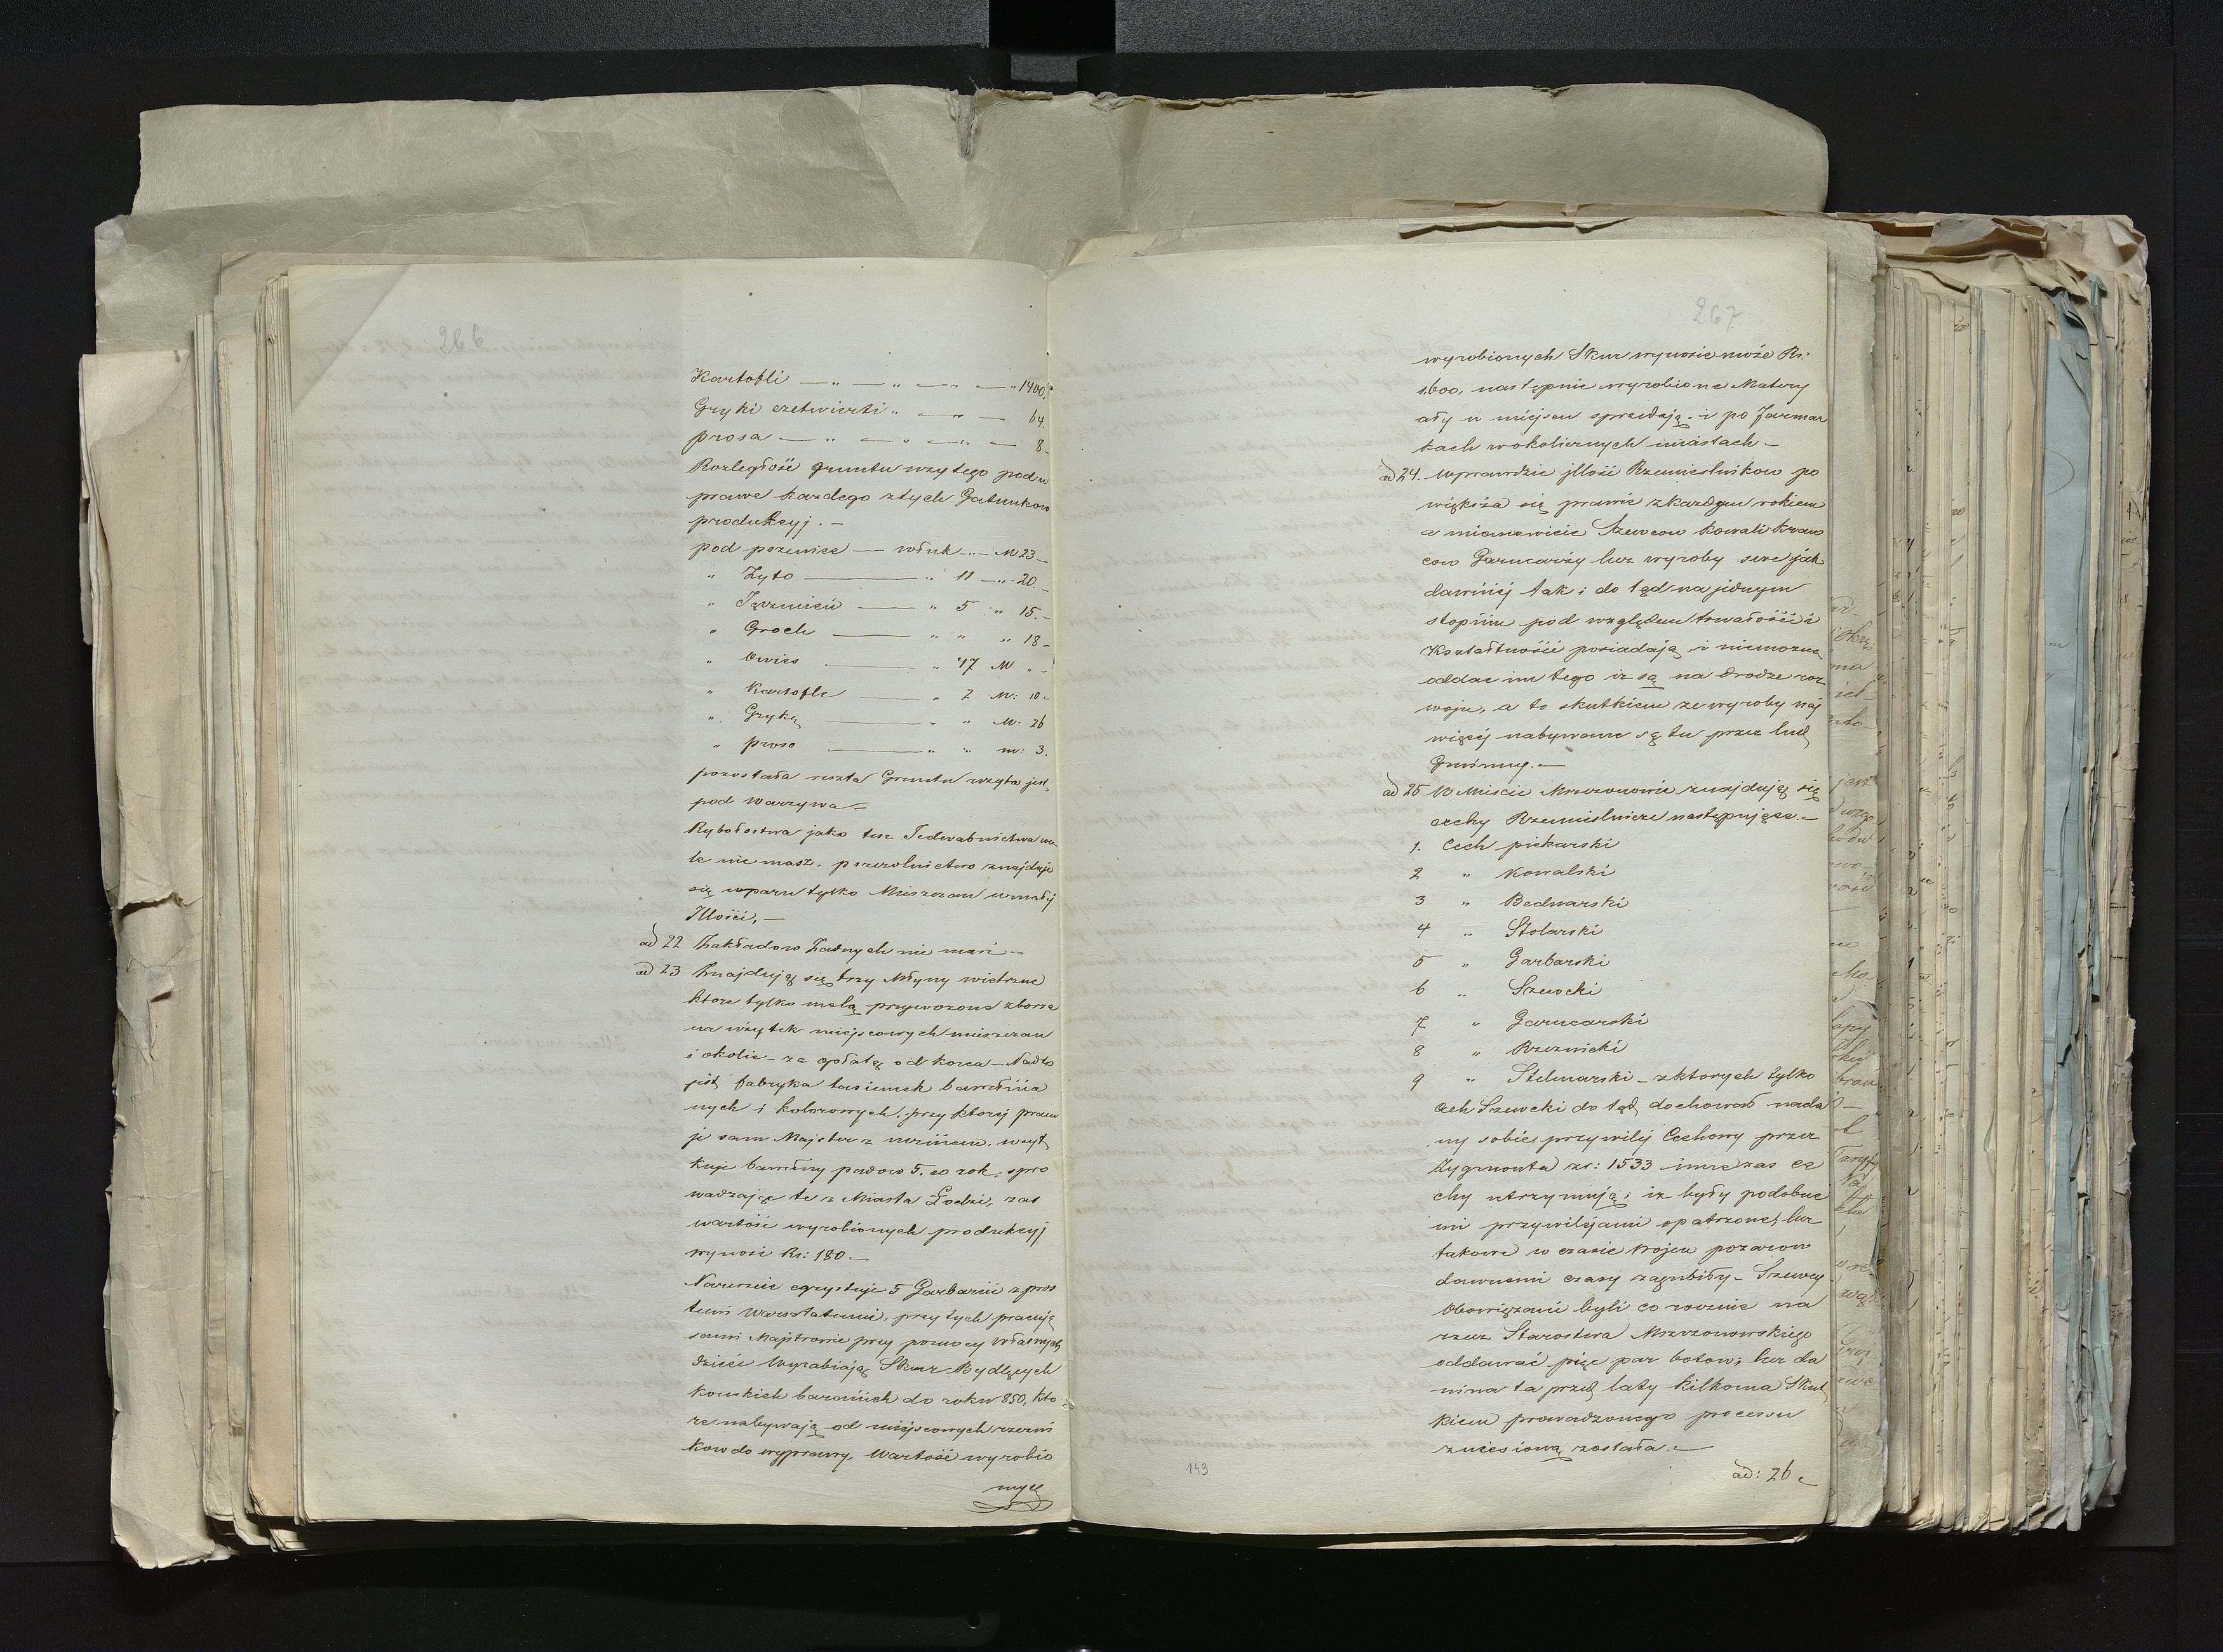 266
Kartofli — „ — „ — „ — „ 1400.
Gryki czetwierti „ — „ — 64.
prosa — „ — „ — „ — 8.
Rozległość gruntu wzytego pod u
prawe kazdego ztych Gatunkow
produkcyj. —
pod pszenice — włuk „ — M 23 —
„ Zyto — „ 11 — „ 20. —
„ Jęczmień — „ 5 „ 15. —
„ Groch — „ „ „ 18 —
„ Owies — „ 17 M „ —
„ Kartofle — „ 2 M: 10 —
„ Grykę — „ „ M: 26
„ proso — „ „ m: 3.
pozostała reszta Gruntu wzyta jest
pod Warzywa —
Rybołostwa jako tesz Jedwabnictwa wca
le nie masz. pszczolnictwo znajduje
się uparu tylko Mieszczan w małej
Illości, —
ad 22 Zakładow Zadnych nie masz —
ad 23 Znajdują się trzy Młyny wietrzne
ktore tylko melą przywozone zborza
na wżytek miejscowych mieszczan
i okolic — za opłatą od korca — Nadto
jest fabryka tasiemek bawełnia
nych i kolorowych, przy ktorej pracu
je sam Majster z uczniem. wzyt
kuje bawełny pudow 5. co rok, spro
wadzając te z Miasta Łodzi, zas
wartość wyrobionych produkcyj
wynosi Rs: 180. —
Nareszcie egzystuje 5 Garbarni z pros
temi Warsztatami, przy tych pracują
sami Majstrowie przy pomocy własnych
dzieci Wyrabiają Skur Bydlęcych
końskich baranich do roku 850, kto
re nabywają od miejscowych rzezni
kow do wyprawy. Wartość wyrobio
nych
267
wyrobionych Skur wynosic może Rs:
1600, następnie wyrobione Matery
ały w miejscu sprzedają i po Jarmar
kach wokolicznych miastach —
ad 24. Wprawdzie jllość Rzemieslnikow po
większa się prawie zkazdym rokiem
a mianowicie Szewcow Kowali Kraw
cow Garncarzy lecz wyroby swe jak
dawniej tak i do tąd na jednym
stopniu pod względem trwałości i
Kształtności posiadają i niemozna
oddac im tego iz są na drodze roz
woju, a to skutkiem ze wyroby naj
więcej nabywane są tu przez lud
Gminny. —
ad 25 W Miescie Mszczonowie znajdują się
cechy Rzemieslnicze następujące. —
1. Cech piekarski
2 „ Kowalski
3 „ Bednarski
4 „ Stolarski
5 „ Garbarski
6 „ Szewcki
7 „ Garncarski
8 „ Rzeznicki
9 „ Stelmarski — zktorych tylko
Cech Szewcki do tąd dochował nada
ny sobie przywilej Cechowy przez
Zygmonta zr: 1533 inne zas ce
chy utrzymują; iz były podobne
mi przywilejami opatrzone, lecz
takowe w czasie wojen pozarow
dawnemi czasy zagubiły — Szewcy
obowiązani byli co rocznie na
rzecz Starostwa Mszczonowskiego
oddawać pięc par botow; lecz da
nina ta przed laty kilkoma Skut
kiem prowadzonego procesu
zniesioną została. —
ad: 26
143